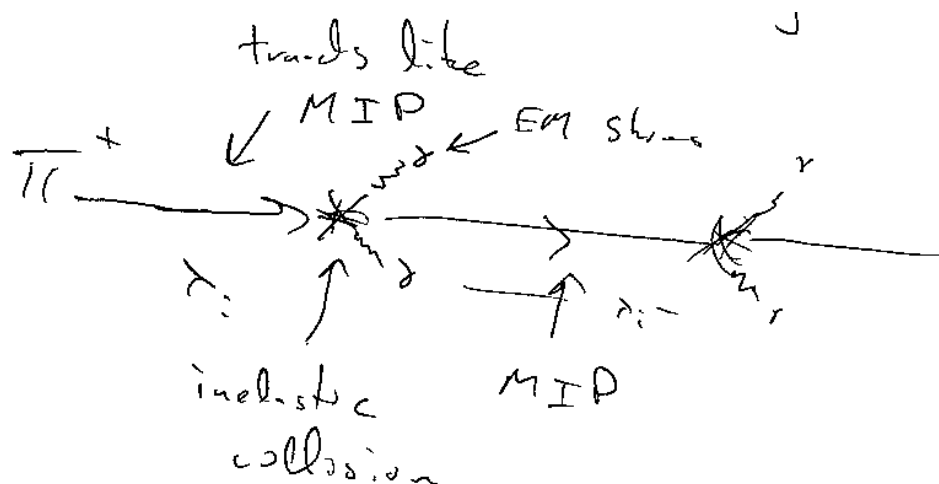 travels like
MIP
EM shower
π⁺
γ
γ
γ
γ
λi
λi
inelastic
collision
MIP